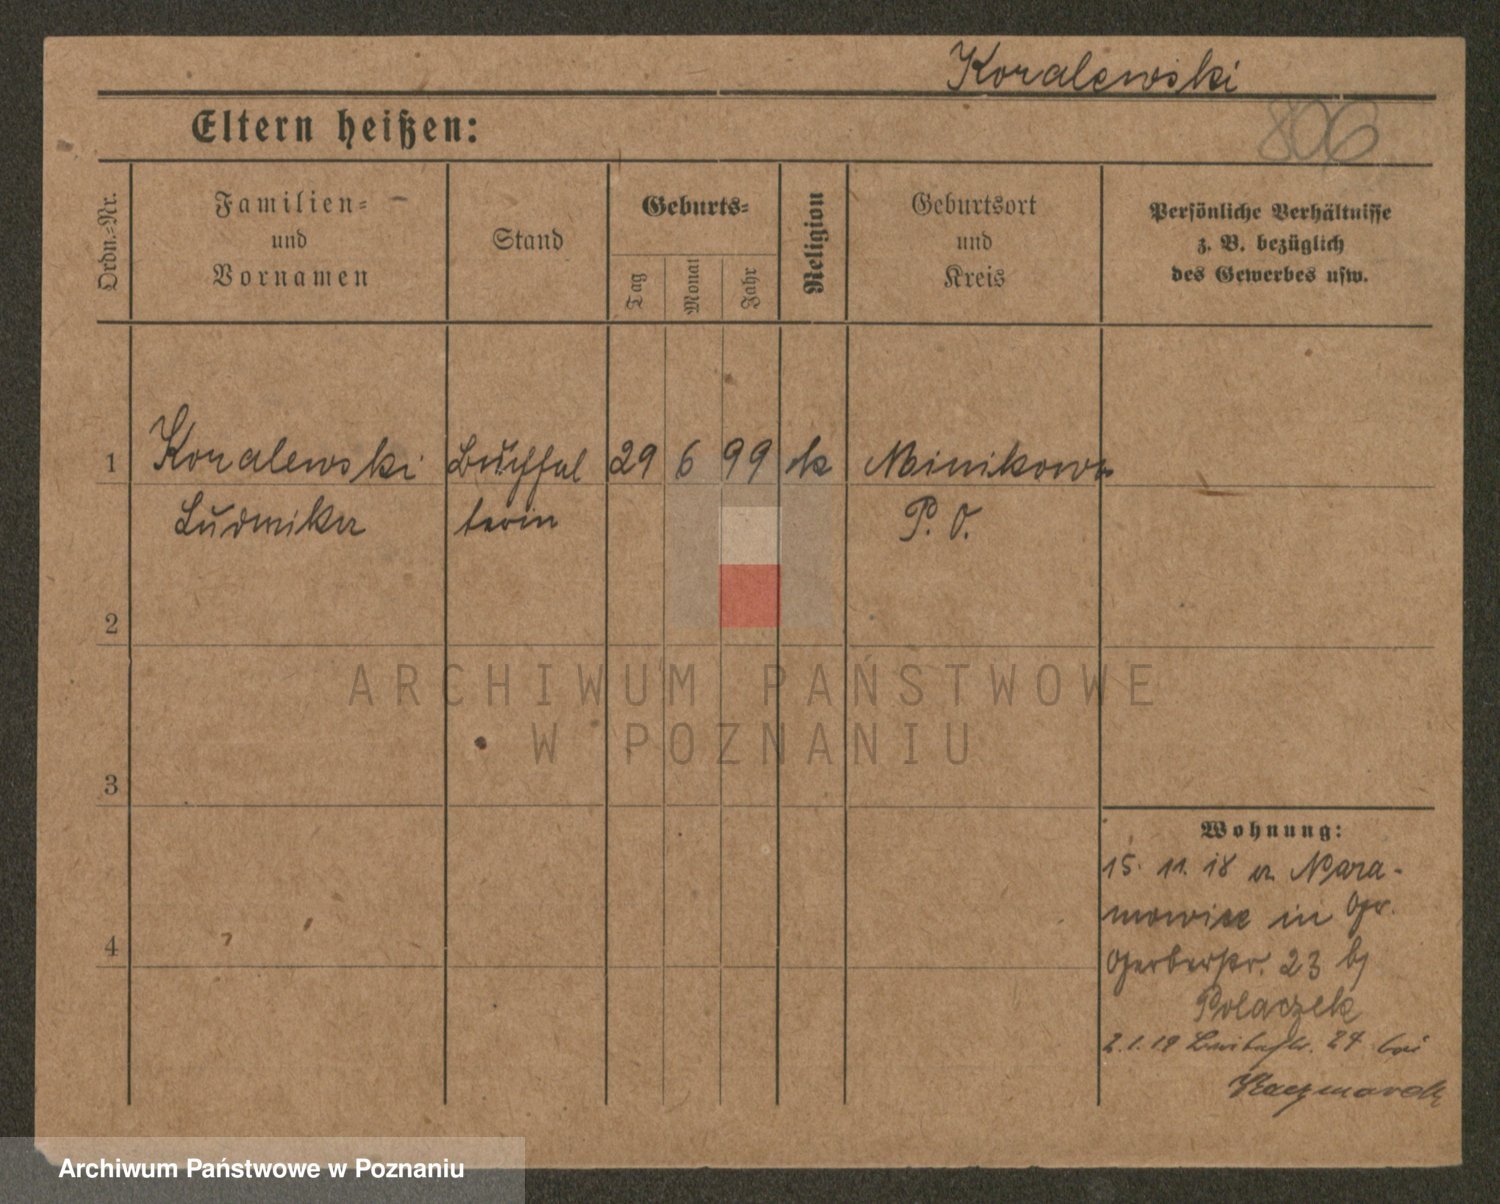 Koralewski
806
Eltern heißen:
Ordn.-Nr.
Familien-
und
Vornamen
Stand
Geburts-
Tag
Monat
Jahr
Religion
Geburtsort
und
Kreis
Persönliche Verhältnisse
z. B. bezüglich
des Gewerbes usw.
1 Koralewski Buchhal 29 6 99 k Minikowo
Ludwika terin P. O.
2
3
4
Wohnung:
15. 11. 18 a Nara-
mowice in Gr.
Gerberstr. 23 bj
Polaczek
2.1.19 27 bei
Kaczmarek
ARCHIWUM PAŃSTWOWE
W POZNANIU
Archiwum Państwowe w Poznaniu